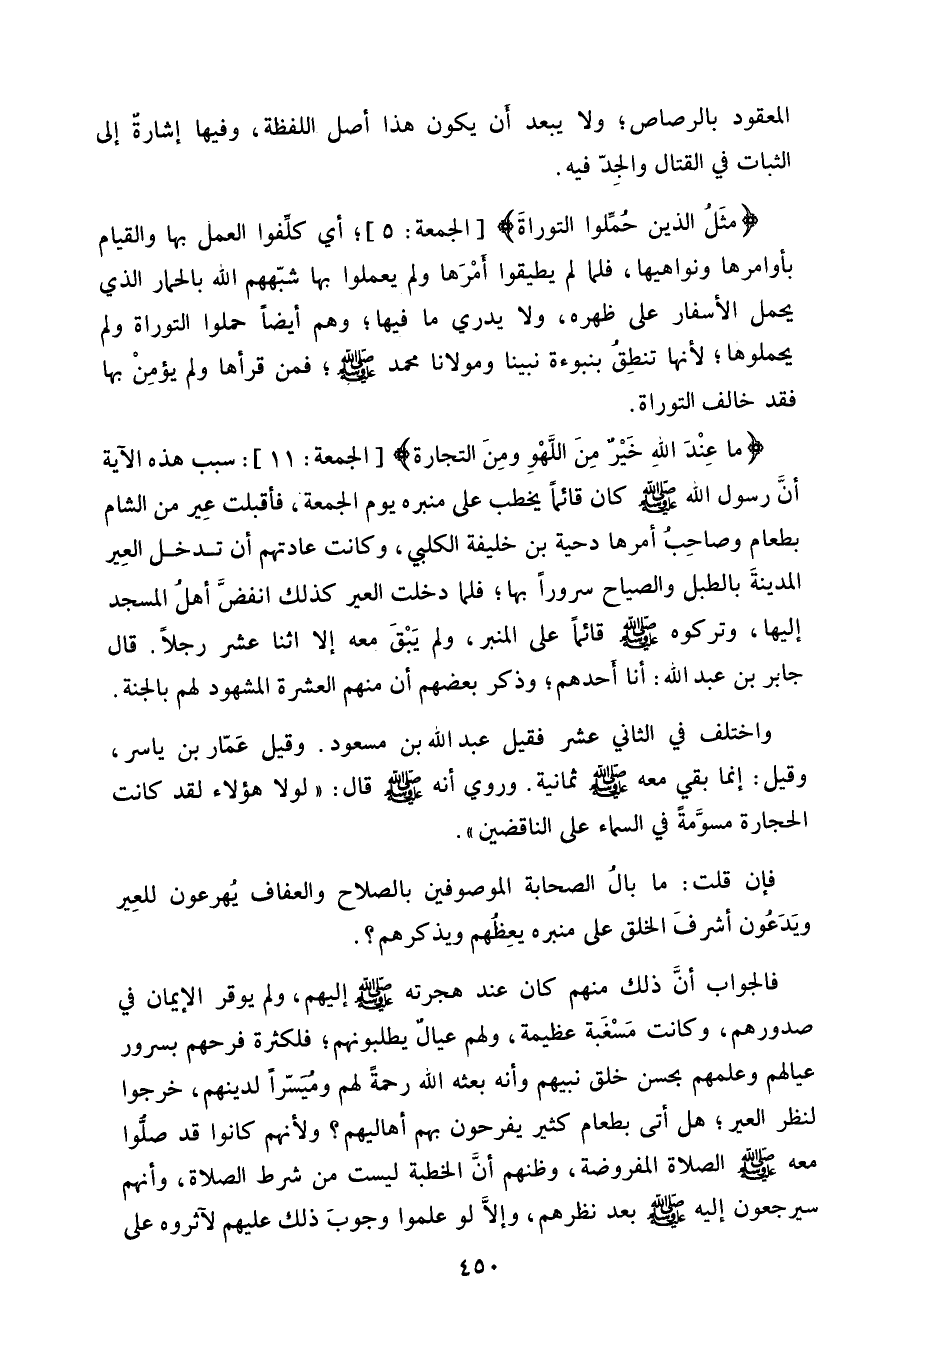 المعقود بالرصاص؛ ولا يبعد أَن يكون هذا أصل اللفظة، وفيها إشارةٌ إلى
الثبات في القتال والجِدّ فيه.
﴿مثَلُ الذين حُمِّلوا التوراةَ﴾ [الجمعة: ٥]؛ أي كلِّفوا العمل بها والقيام
بأوامرها ونواهيها، فلما لم يطيقوا أَمْرَها ولم يعملوا بها شبّههم الله بالحمار الذي
يحمل الأسفار على ظهره، ولا يدري ما فيها؛ وهم أيضاً حملوا التوراة ولم
يحملوها؛ لأنها تنطِقُ بنبوءة نبينا ومولانا محمد ﷺ؛ فمن قرأها ولم يؤمِنْ بها
فقد خالف التوراة.
﴿ما عِنْدَ اللهِ خَيْرٌ مِنَ اللَّهْوِ ومِنَ التجارة﴾ [الجمعة: ١١]: سبب هذه الآية
أنَّ رسول الله ﷺ كان قائماً يخطب على منبره يوم الجمعة، فأقبلت عِير من الشام
بطعام وصاحِبُ أمرها دحية بن خليفة الكلبي، وكانت عادتهم أن تـدخـل العِير
المدينةَ بالطبل والصياح سروراً بها؛ فلما دخلت العير كذلك انفضَّ أهلُ المسجد
إليها، وتركوه ﷺ قائماً على المنبر، ولم يَبْقَ معه إلا اثنا عشر رجلاً. قال
جابر بن عبد الله: أنا أَحدهم؛ وذكر بعضهم أن منهم العشرة المشهود لهم بالجنة.
واختلف في الثاني عشر فقيل عبد الله بن مسعود. وقيل عَمّار بن ياسر،
وقيل: إنما بقي معه ﷺ ثمانية. وروي أنه ﷺ قال: «لولا هؤلاء لقد كانت
الحجارة مسوَّمةً في السماء على الناقضين».
فإن قلت: ما بالُ الصحابة الموصوفين بالصلاح والعفاف يُهرعون للعِير
ويَدَعُون أشرفَ الخلق على منبره يعِظُهم ويذكرهم؟.
فالجواب أنَّ ذلك منهم كان عند هجرته ﷺ إليهم، ولم يوقر الإيمان في
صدورهم، وكانت مَسْغَبة عظيمة، ولهم عيالٌ يطلبونهم؛ فلكثرة فرحهم بسرور
عيالهم وعلمهم بحسن خلق نبيهم وأنه بعثه الله رحمةً لهم ومُيَسّراً لدينهم، خرجوا
لنظر العير؛ هل أتى بطعام كثير يفرحون بهم أهاليهم؟ ولأنهم كانوا قد صلُّوا
معه ﷺ الصلاة المفروضة، وظنهم أنَّ الخطبة ليست من شرط الصلاة، وأنهم
سيرجعون إليه ﷺ بعد نظرهم، وإلاَّ لو علموا وجوبَ ذلك عليهم لآثروه على
٤٥٠